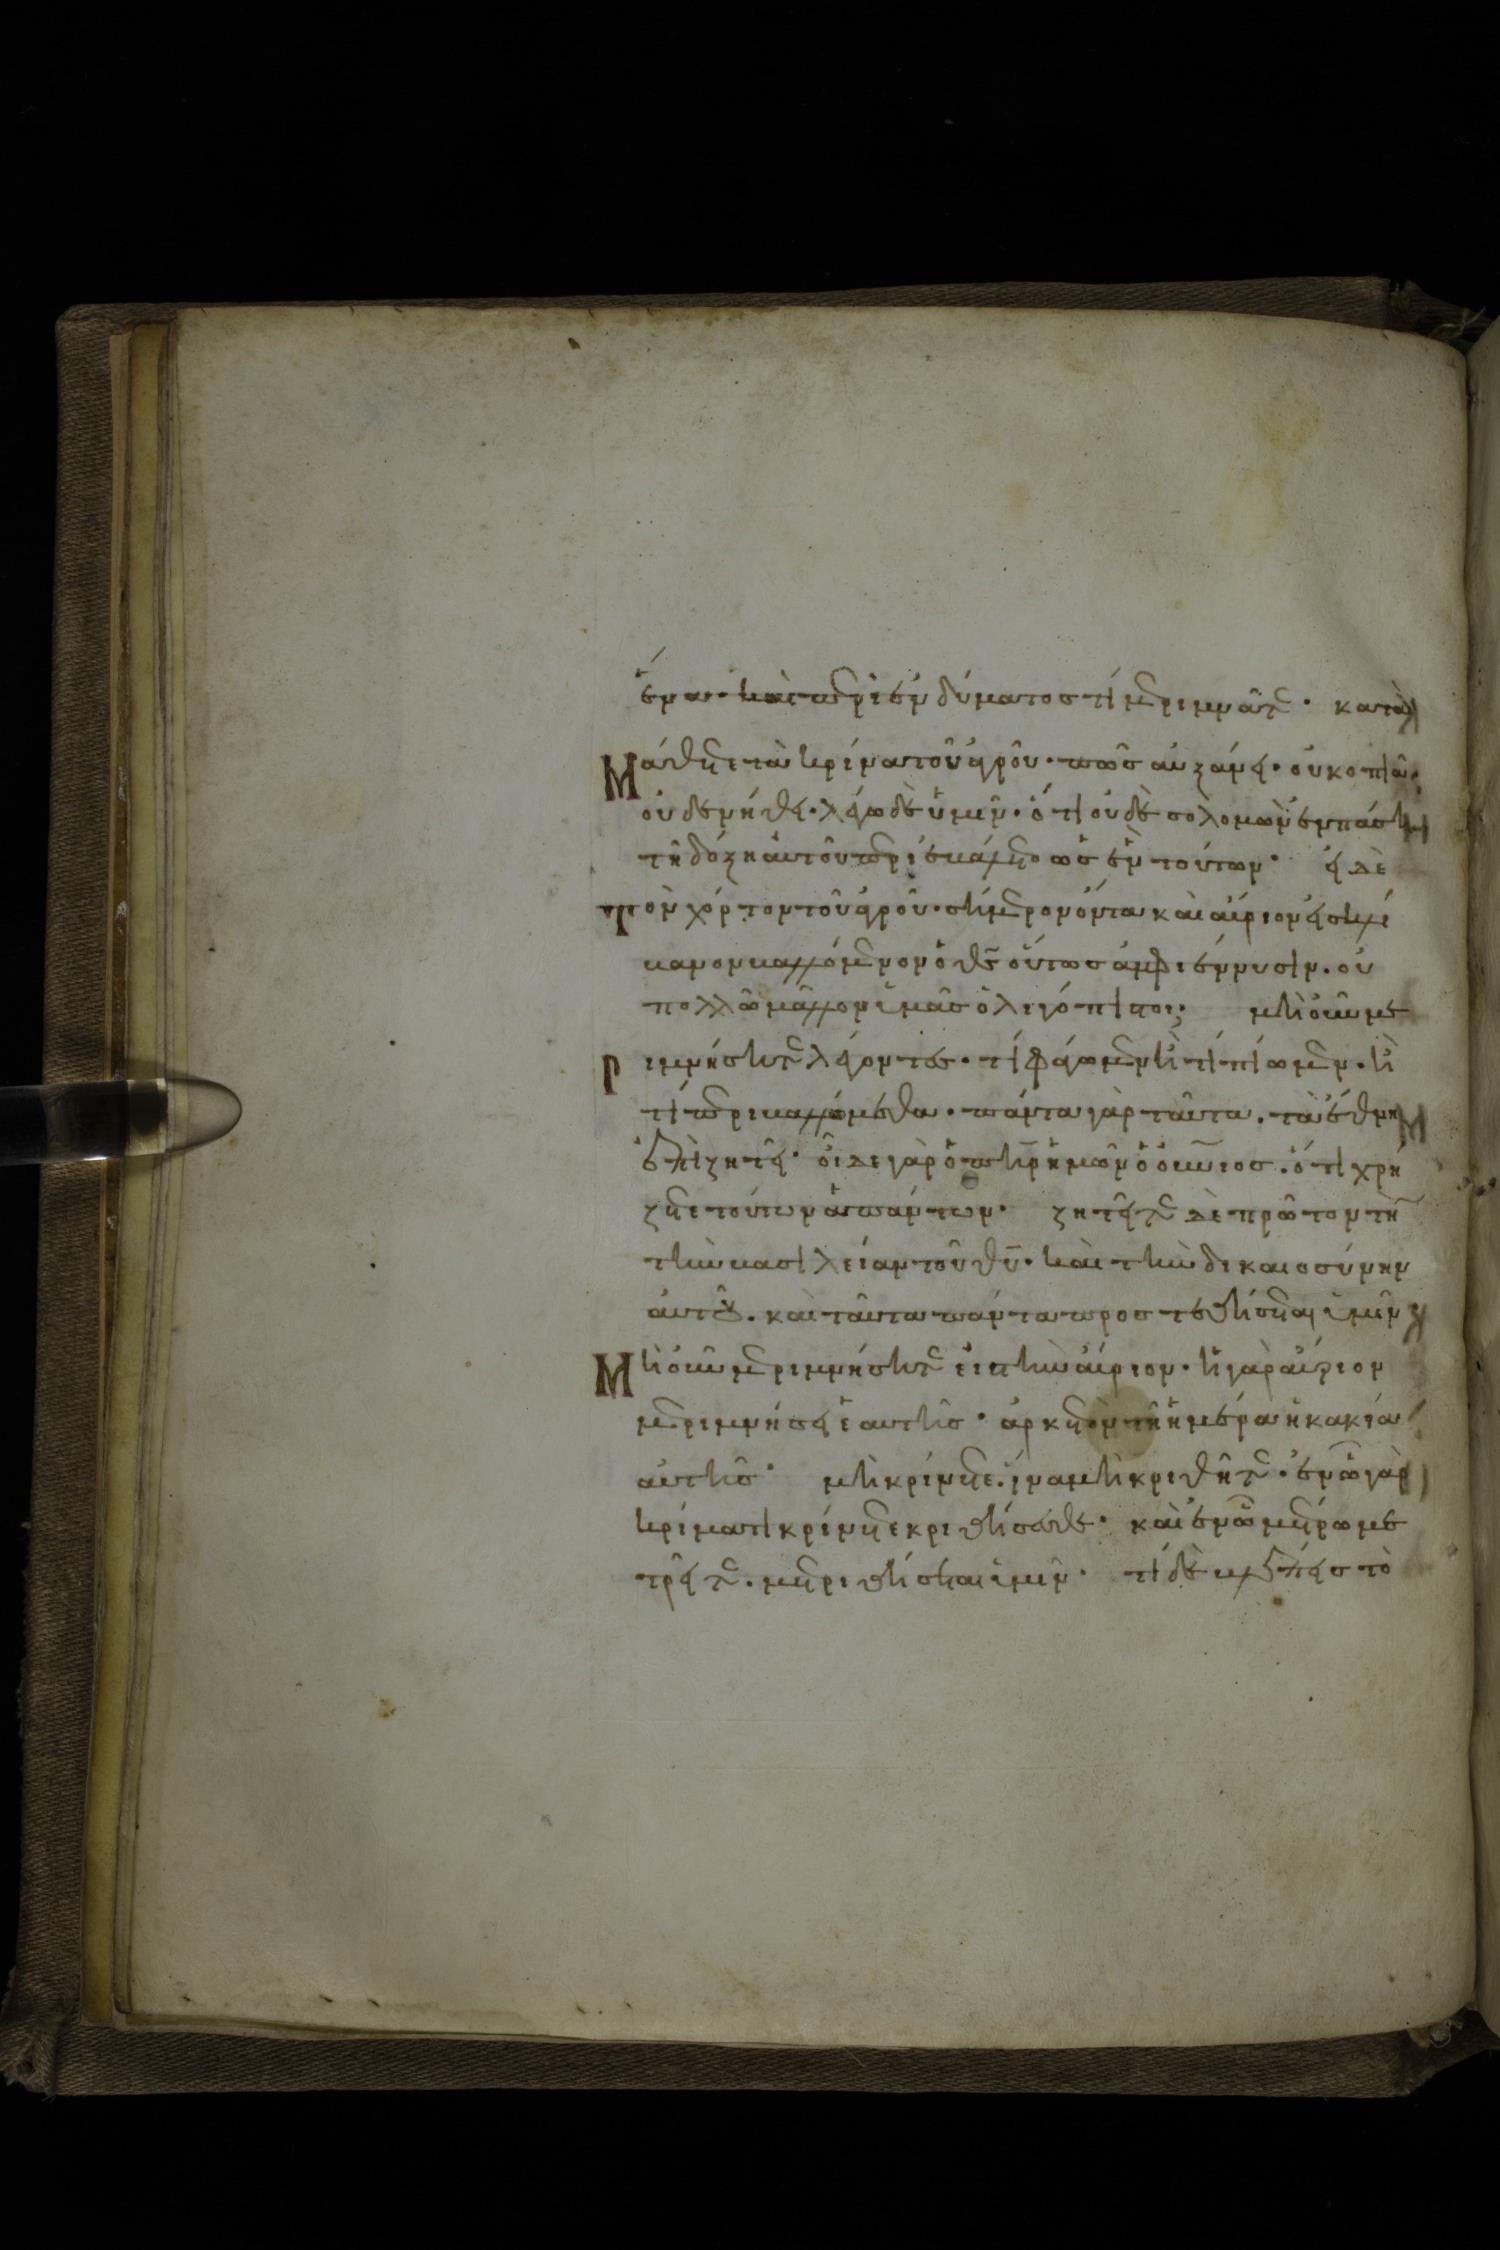 ἕνα· καὶ περὶ ἐνδύματος τί μεριμνᾶτε· κατα
Μάθετε τὰ κρίνα τοῦ ἀγροῦ· πῶς αὐξάνει· οὐ κοπιᾶ·
οὐδὲ νήθει· λέγω δὲ ὑμῖν· ὅτι οὐδὲ σολομὼν ἐν πάσῃ
τῇ δόξῃ αὐτοῦ περιεβάλετο ὡς ἓν τούτων· εἰ δὲ
Τὸν χόρτον τοῦ ἀγροῦ· σήμερον ὄντα καὶ αὔριον εἰς κλί
βανον βαλλόμενον ὁ θς οὕτως ἀμφιέννυσιν· οὐ
πολλῶ μᾶλλον ὑμᾶς ὀλιγόπιστοι; μὴ οὖν με
Ριμνήσητε λέγοντες· τί φάγωμεν ἢ τί πίωμεν· ἢ
τί περιβαλλόμεθα· πάντα γὰρ ταῦτα· τὰ ἔθνη
ἐπιζητεῖ· οἶδε γὰρ ὁ πηρ ἡμῶν ὁ οὐνιος· ὅτι χρή
ζετε τούτων ἁπάντων· ζητεῖτε δὲ πρῶτον τὴ
τὴν βασιλείαν τοῦ θυ· καὶ τὴν δικαιοσύνην
αὐτοῦ· καὶ ταῦτα πάντα προστεθήσεται ὑμῖν
Μὴ οὖν μεριμνήσητε εἰς τὴν αὔριον· ἡ γὰρ αὔριον
μεριμνήσει ἑαυτῆς· ἀρκετὸν τῇ ἡμέρα ἡ κακία
αὐτῆς· μὴ κρίνετε· ἵνα μὴ κριθῆτε· ἐν ᾧ γὰρ
κρίματι κρίνετε κριθήσεσθε· καὶ ἐν ᾧ μέτρω με
τρεῖτε· μετριθήσεται ὑμῖν· τί δὲ βλέπεις τὸ